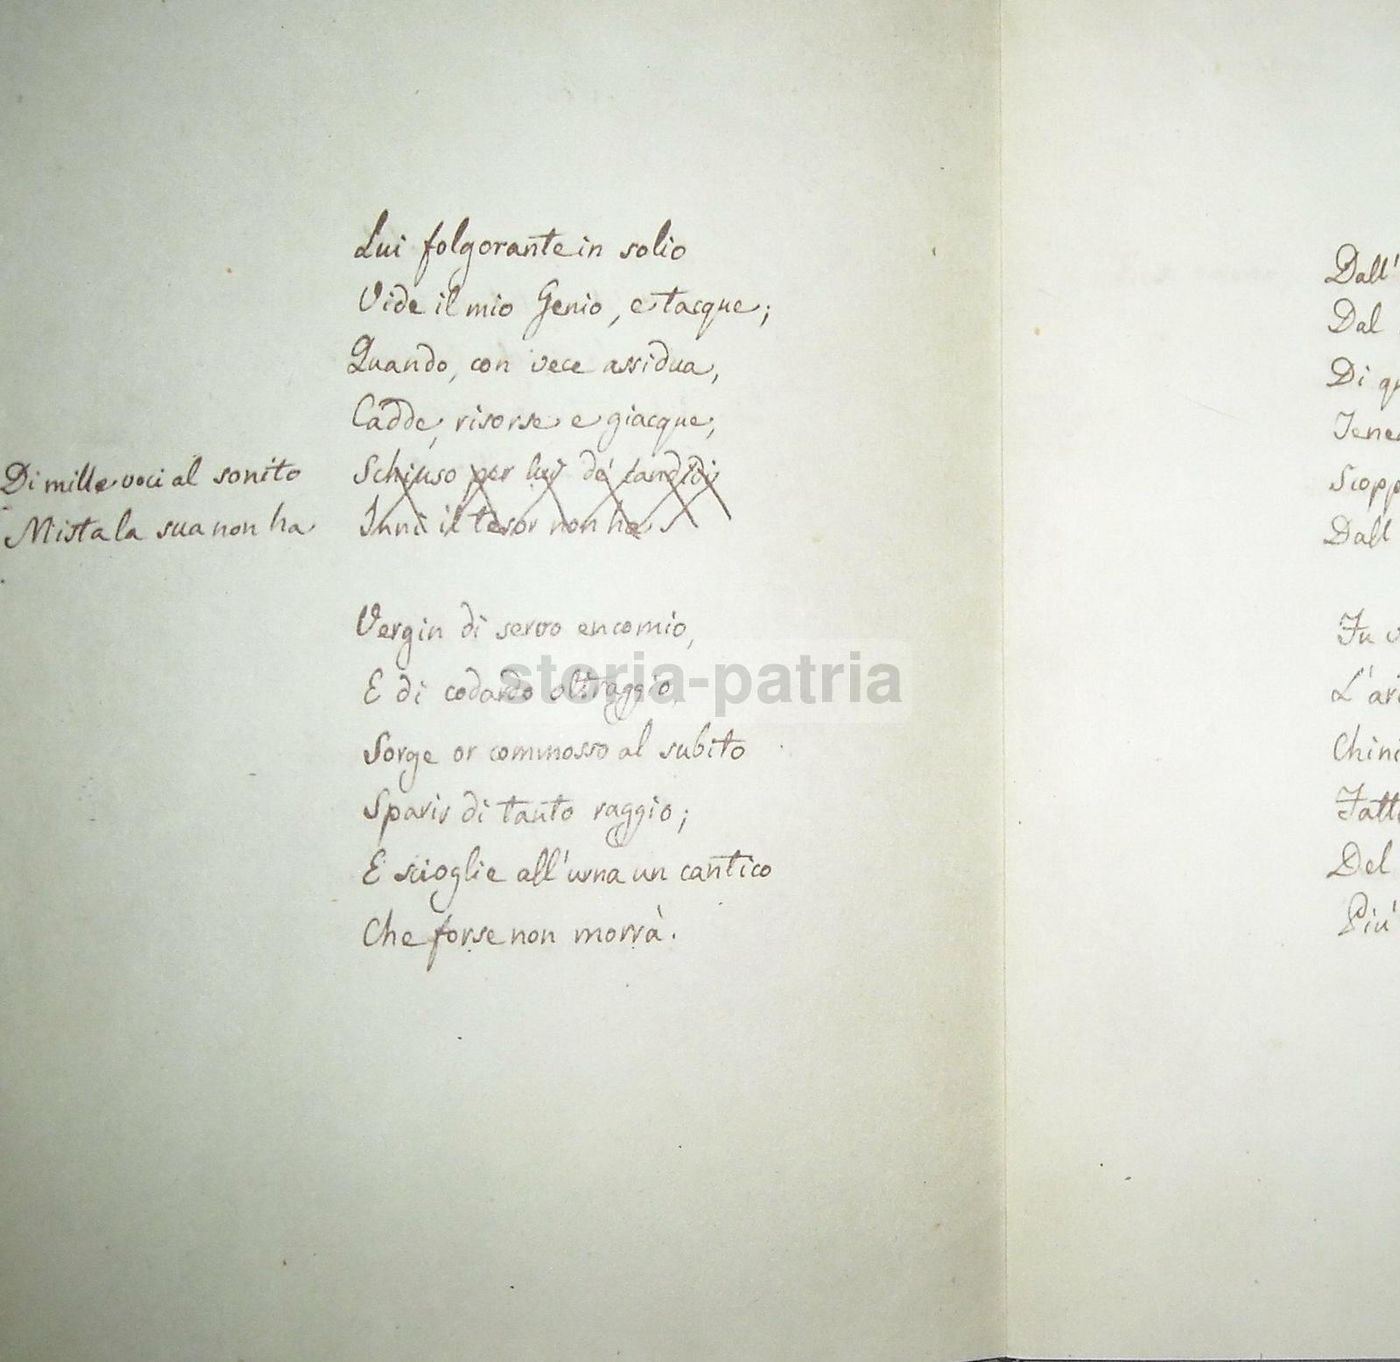 Lui folgorante in solio
Vide il mio Genio, e tacque;
Quando, con vece assidua,
Cadde, risorse e giacque,
Di mille voci al sonito
Mista la sua non ha
Schiuso per lui de' candidi
Inni il tesor non ha:
Vergin di servo encomio,
E di codardo oltraggio,
Sorge or commosso al subito
Sparir di tanto raggio;
E scioglie all'urna un cantico
Che forse non morrà.
storia-patria
Dall'
Dal
Di qu
Tene
Scopp
Dall'
Fu v
L'ar
Chini
Fatt
Del
Più